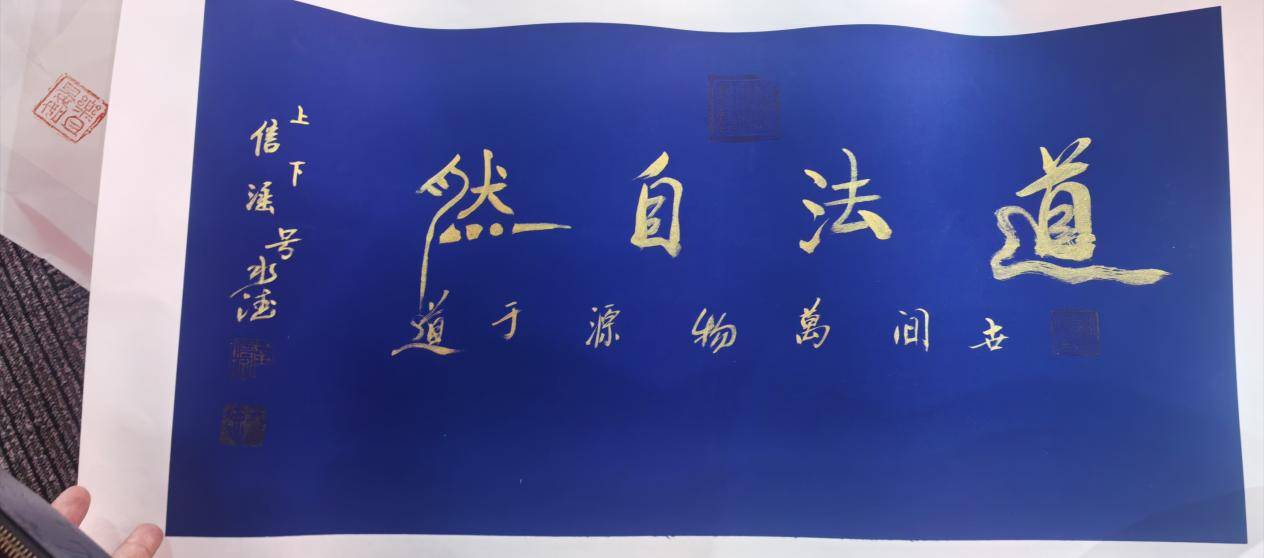 道法自然
世间萬物源于道
上下
信
号